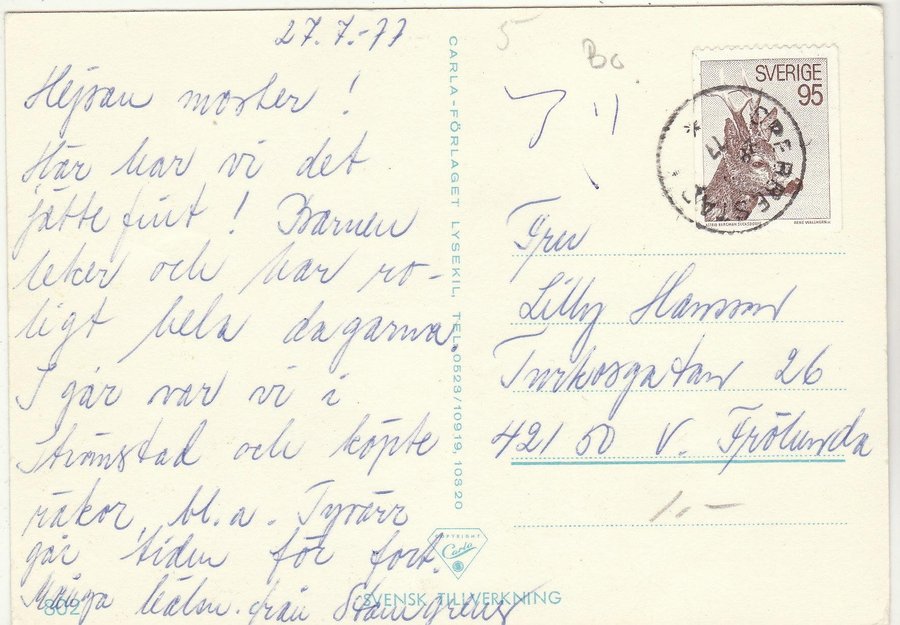 27.7.-77
Hejsan moster!
Här har vi det
jättefint! Barnen
leker och har ro-
ligt hela dagarna.
I går var vi i
Strömstad och köpte
räkor, bl.a. Tyvärr
går tiden för fort.
Många hälsn. från
802
CARLA-FÖRLAGET LYSEKIL, TEL. 0523/10919, 10320
COPYRIGHT
Carla
SVENSK TILLVERKNING
5
Bo
SVERIGE
95
Fru
Lilly Hansson
Turkosgatan 26
421 50 V. Frölunda
1,-